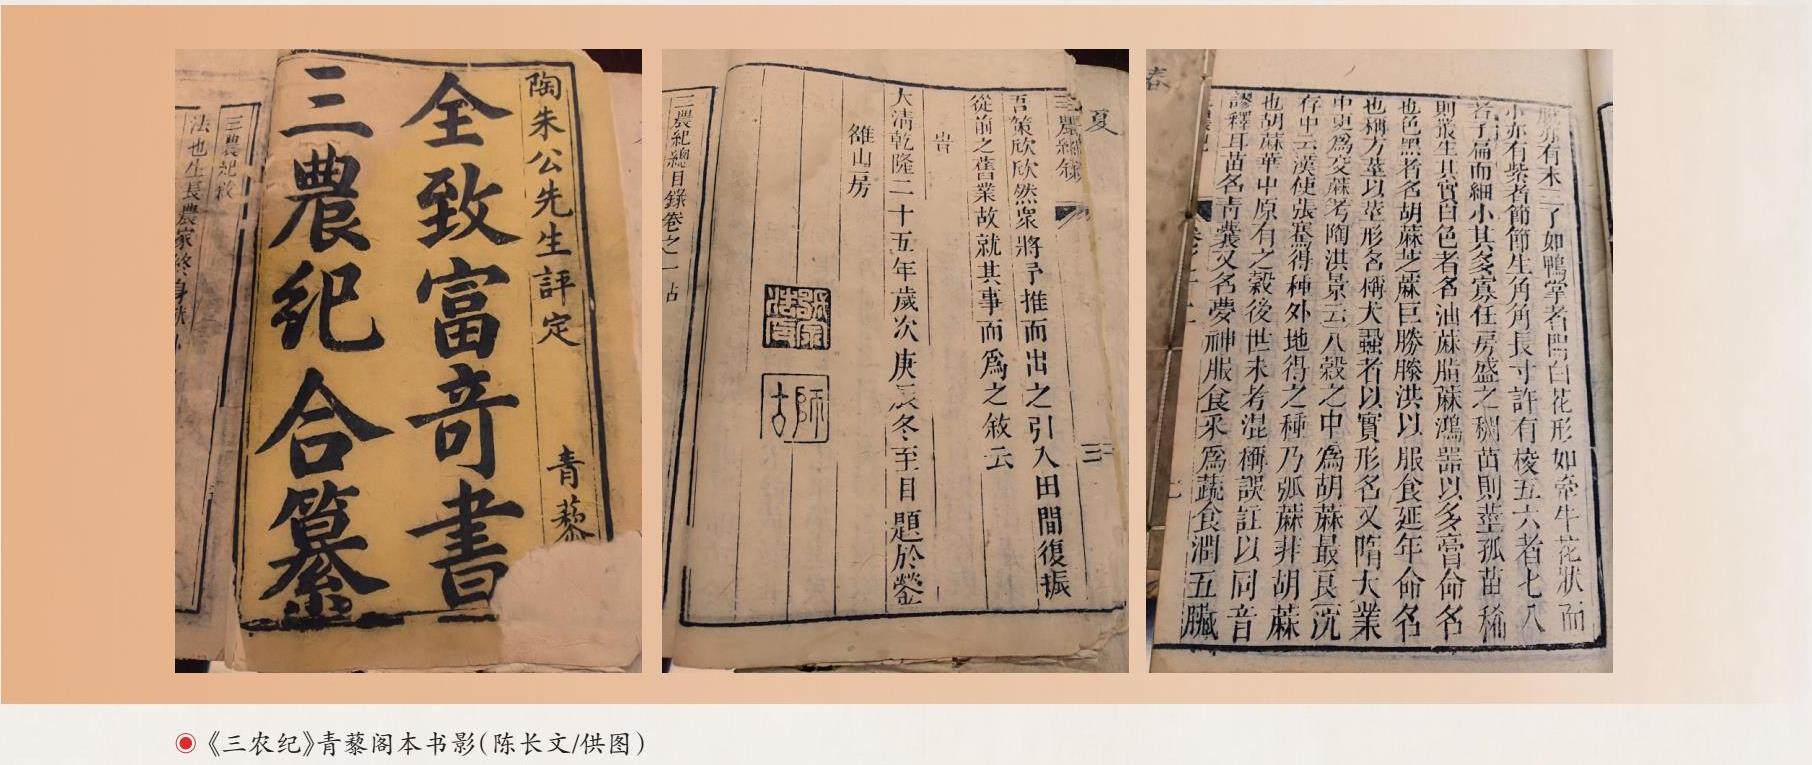 陶朱公先生評定 青藜
全致富奇書
三農紀合纂
三農紀敘
法也生長農家終身
夏
三
吾策欣欣然衆將予推而出之引入田間復振
從前之舊業故就其事而爲之敘云
旹
大清乾隆二十五年歲次庚辰冬至日題於鎣
雒山房
師古
三農紀總目錄卷之一 占
春
亦有木二了如鴨掌者開白花形如牽牛花狀而
小亦有紫者節節生角角長寸許有棱五六者七八
者子扁而細小其多寡在房盛之稠苗則莖孤苗稀
則叢生其實白色者名油蔴脂蔴鴻噐以多膏命名
也色黑者名胡蔴芝蔴巨勝藤洪以服食延年命名
也稱方莖以莖形名稱犬蝨者以實形名又隋大業
中更爲交蔴考陶洪景云八穀之中爲胡蔴最良沈
存中云漢使張騫得種外地得之種乃弧蔴非胡蔴
也胡蔴華中原有之穀後世未考混稱誤訌以同音
謬釋耳苗名青蘘又名夢神服食采爲蔬食潤五臟
《三农纪》青藜阁本书影(陈长文/供图)